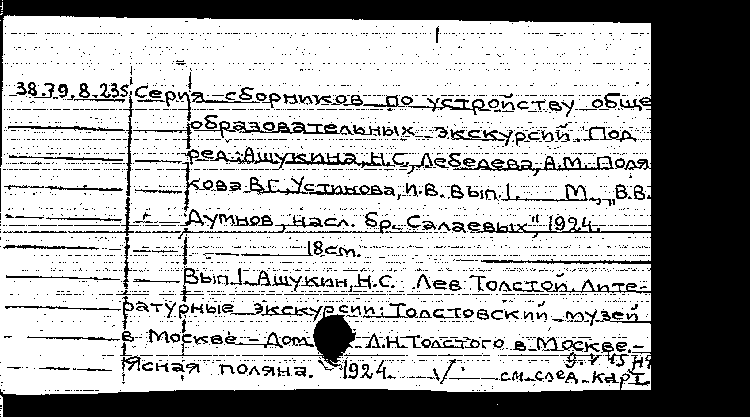 38.79.8.235 Серия сборников по устройству обще
образовательных экскурсий. Под
ред.: Ашукина, Н.С, Лебедева, А.М. Поля
кова В.Г., Устинова, И.В. Вып.1. М., „В.В.
Думнов, насл. бр. Салаевых", 1924.
18см.
Вып.1. Ашукин, Н.С. Лев Толстой. Лите-
ратурные экскурсии: Толстовский музей
в Москве. - Дом Л.Н.Толстого в Москве.-
Ясная поляна. 1924.
см. след. карт.